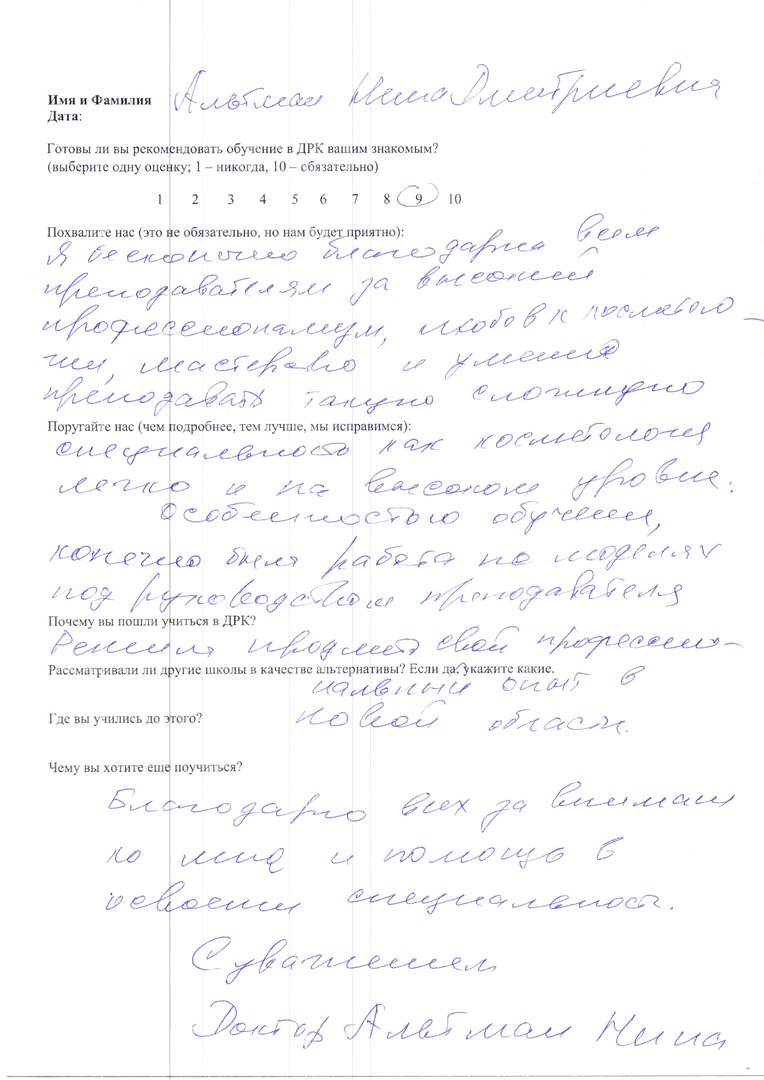 Имя и Фамилия Альтман Нина Дмитриевна
Дата:
Готовы ли вы рекомендовать обучение в ДРК вашим знакомым?
(выберите одну оценку; 1 – никогда, 10 – обязательно)
1 2 3 4 5 6 7 8 9 10
Похвалите нас (это не обязательно, но нам будет приятно):
Я бесконечно благодарна всем
преподавателям за высокий
профессионализм, любовь к косметоло-
гии, мастерство и умение
преподавать такую сложную
Поругайте нас (чем подробнее, тем лучше, мы исправимся):
специальность как косметология
легко и на высоком уровне.
Особенностью обучения,
конечно была работа на моделях
под руководством преподавателя
Почему вы пошли учиться в ДРК?
Решила продлить свой профессио-
Рассматривали ли другие школы в качестве альтернативы? Если да, укажите какие.
нальный опыт в
Где вы учились до этого? новой области.
Чему вы хотите еще поучиться?
Благодарю всех за внимание
ко мне и помощь в
освоении специальности.
С уважением
Доктор Альтман Нина